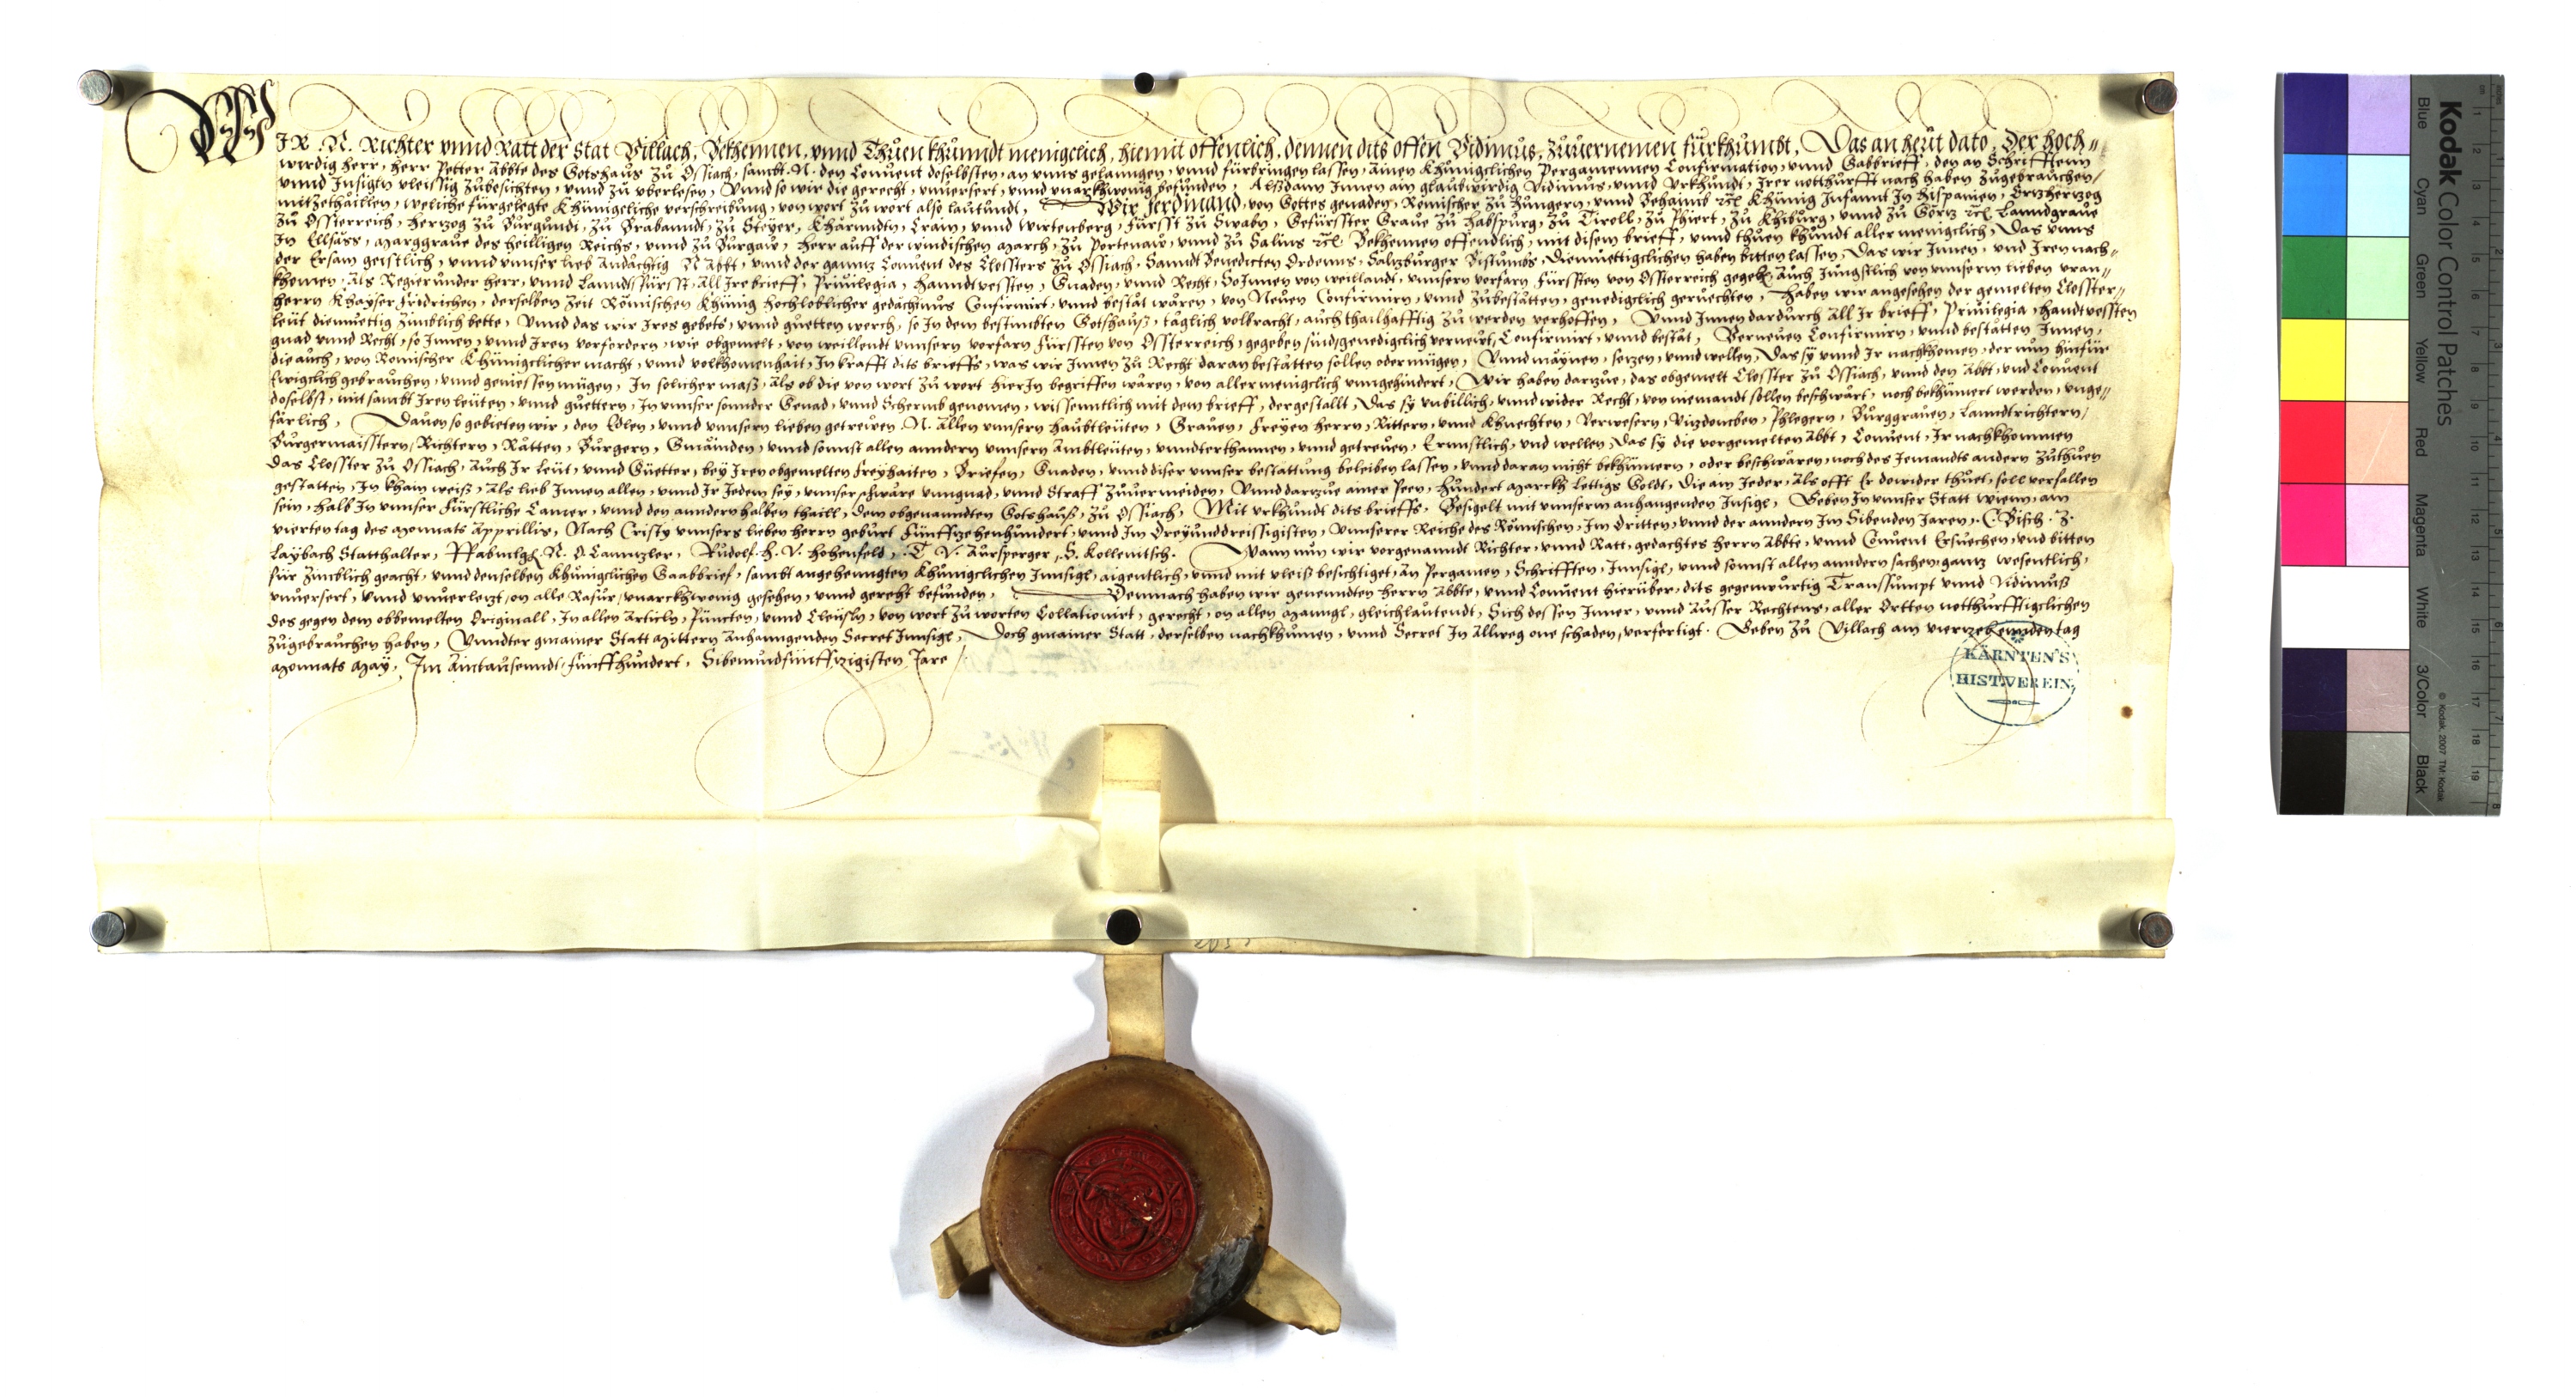 WJR .N. Richter vnnd Ratt der Stat Villach, Bekhennen, vnnd Thuen khunndt menigclich, hiemit offenlich, dennen dits offen Vidimus, zuuernemen fürkhumbt, Das an heut dato, Der hoch=
wirdig herr, herr Petter Abbte des Gotshaus zu Ossiach, sambt .N. den Conuent doselbsten, an vnns gelanngen, vnnd fürbringen lassen, ainen Khunigclichen Pergamennen Confirmation, vnnd Gabbrieff, den an Schrifften
vnnd Insigln vleissig zubesichten, vnnd zu vberlesen, Vnnd so wir die gerecht, vnuersert, vnnd vnarkhwonig befunden, Alßdann Innen ain glaubwirdig Vidimus, vnnd Vrkhundt, Irer notthurfft nach haben zugebrauchen,
mitzethaillen, weliche fürgelegte Khunigeliche verschreibung, von wort zu wort also lautundt, Wir Ferdinand, von Gottes genaden, Römischer zu Hungern, vnnd Behaimb etc. Khünig Infannt In Hispanien, Ertzhertzog
zu Ossterreich, Hertzog zu Burgundt, zu Brabanndt, zu Steyer, Kharnndtn, Crain, vnnd Wirtenberg, Fürsst zu Swabn, Gefürsster Graue zu Habspurg, zu Tiroll, zu Phiert, zu Khiburg, vnnd zu Görtz etc. Lanndgraue
In Ellsäss, Marggraue des heilligen Reichs, vnnd zu Burgaw, Herr auff der windischen March, zu Portenaw, vnnd zu Salins etc. Bekhennen offendlich, mit disem brieff, vnnd thuen khundt aller menigclich, Das vnns
der Ersam geistlich, vnnd vnnser lieb Andächtig N Abbt, vnnd der gannz Conuent des Clossters zu Ossiach, Sanndt Benedicten Ordenns, Saltzburger Bistumbs, Diemuettigclichen haben bitten lassen, Das wir Innen, vnd Iren nach=
khomen, Als Regierunder herr, vnnd Lanndsfürsst, All Ire brieff, Priuilegia, Hanndtvessten, Gnaden, vnnd Recht, So Innen von weillandt, vnnsern vorfarn Fürssten von Ossterreich gegeben, Auch Jungstlich von vnnserm lieben vran=
herrn Khayser Fridrichen, derselben zeit Römischen Khünig hochloblicher gedächtnus Confirmirt, vnnd bestät wären, von Neuen Confirmirn, vnnd zubestätten, genedigclich geruechten, Haben wir angesehen der gemelten Closster=
leüt diemuettig zimblich bette, Vnnd das wir Ires gebets, vnnd guetten werch, so In dem bestimbten Gotshauß, täglich volbracht, auch thailhafftig zu werden verhoffen, Vnnd Innen dardurch All Ir brieff, Priuilegia, Handtvessten
gnad vnnd Recht, so Innen, vnnd Iren vorfordern, wie obgemelt, von weillendt vnnsern vorfarn Fürssten von Ossterreich, gegeben sind, genedigclich verneurt, Confirmirt, vnnd bestät, Verneuen Confirmirn, vnnd bestätten Innen,
die auch, von Romischer Khünigclicher macht, vnnd volkhomenhait, In krafft dits brieffs, was wir Innen zu Recht daran bestätten sollen oder mügen, Vnnd maynen, setzen, vnnd wellen, Das sy vnnd Ir nachkhomen, der nun hinfür
Ewigclich gebrauchen, vnnd geniessen mügen, In solicher maß, Als ob die von wort zu wort hierIn begriffen wären, von aller menigclich vnngehindert, Wir haben dartzue, das obgemelt Closster zu Ossiach, vnnd den Abbt, vnd Conuent
doselbst, mit sambt Iren leüten, vnnd guettern, In vnnser sonnder Genad, vnnd Schermb genomen, wissenntlich mit dem brieff, dergestallt, Das sy vnbillich, vnnd wider Recht, von niemandt sollen beschwärt, noch bekhümert werden, vnge=
färlich, Dauon so gebieten wir, den Edlen, vnnd vnnsern lieben getrewen .N. Allen vnnsern Haubtleuten, Grauen, Freyen herrn, Rittern, vnnd Khnechten, Verwesern, Vizdomben, Phlegern, Burggrauen, Lanndtrichtern,
Burgermaisstern, Richtern, Rätten, Burgern, Gmainden, vnnd sonnst allen anndern vnnsern Ambtleuten, vnndterthannen, vnnd getreuen, Ernnstlich, vnd wellen, Das sy die vorgemelten Abbt, Conuent, Ir nachkhommen
Das Closster zu Ossiach, Auch Ir leüt, vnnd Güetter, bey Iren obgemelten Freyhaiten, Briefen, Gnaden, vnnd diser vnnser bestattung beleiben lassen, vnnd daran nicht bekhümern, oder beschwären, noch des Jemandts andern zuthuen
gestatten, In kham weiß, Als lieb Innen allen, vnnd Ir Jedem sey, vnnser schwäre vnngnad, vnnd Straff zuuermeiden, Vnnd dartzue ainer Peen, Hundert Marckh Lettigs Goldt, Die ain Jeder, Als offt Er dewider thuet, soll verfallen
sein, Halb In vnnser Fürstliche Camer, vnnd den anndern halben thaill, dem obgenanndten Gotshauß, zu Ossiach, Mit vrkhundt dits brieffs, Besigelt mit vnnserm anhangenden Insigl, Geben In vnnser Statt Wienn, am
vierten tag des Monnats Apprillis, Nach Cristy vnnsers lieben herrn geburt Fünffzehenhundert, vnnd Im Dreyunddreissigisten, Vnnserer Reiche des Römischen, Im Dritten, vnnd der anndern Im Sibenden Jaren. C. Bisch. z.
Laybach Statthalter, Rudolf. H. V. Hohenfeld, Aursperger, S. Kollenitsch. Wann nun wir vorgenanndt Richter, vnnd Ratt, gedachtes herrn Abbte, vnnd Conuent Ersuechen, vnnd bitten
für zimblich geacht, vnnd denselben Khünigclichen Gaabbrief, sambt angehenngten Khunigclichen Innsigl, aigentlich, vnnd mit vleiß besichtiget, An Pergamen, Schrifften, Innsigl, vnnd sonnst allen anndern sachen, gantz wesentlich,
vnuersert, vnnd vnuerletzt, on alle Rasur, vnarckhwonig gesehen, vnnd gerecht befunden, Demnach haben wir genennten herrn Abbte, vnnd Conuent hierüber, dits gegenwürtig Transsumpt vnnd Vidimuß
des gegen dem obbemelten Originall, In allen Articln, Puncten, vnnd Cleusln, von wort zu worten Collationirt, gerecht, on allen Manngl, gleichlautendt, Sich dessen Inner, vnnd Ausser Rechtens, aller Ortten notthurfftigclichen
zugebrauchen haben, Vnndter gmainer Statt Mittern Anhanngenden Secret Innsigl, Doch gmainer Statt, derselben nachkhumen, vnnd Secret In Allweg one schaden, verfertigt. Geben zu Villach am viertzehenndentag
Monnats May, Im Aintausenndt, fünffhundert, Sibenundfünffzigisten Jare
KÄRNTEN'S
HIST.VEREIN
Kodak Color Control Patches
Blue Cyan Green Yellow Red Magenta White 3/Color Black
© Kodak, 2007 TM: Kodak